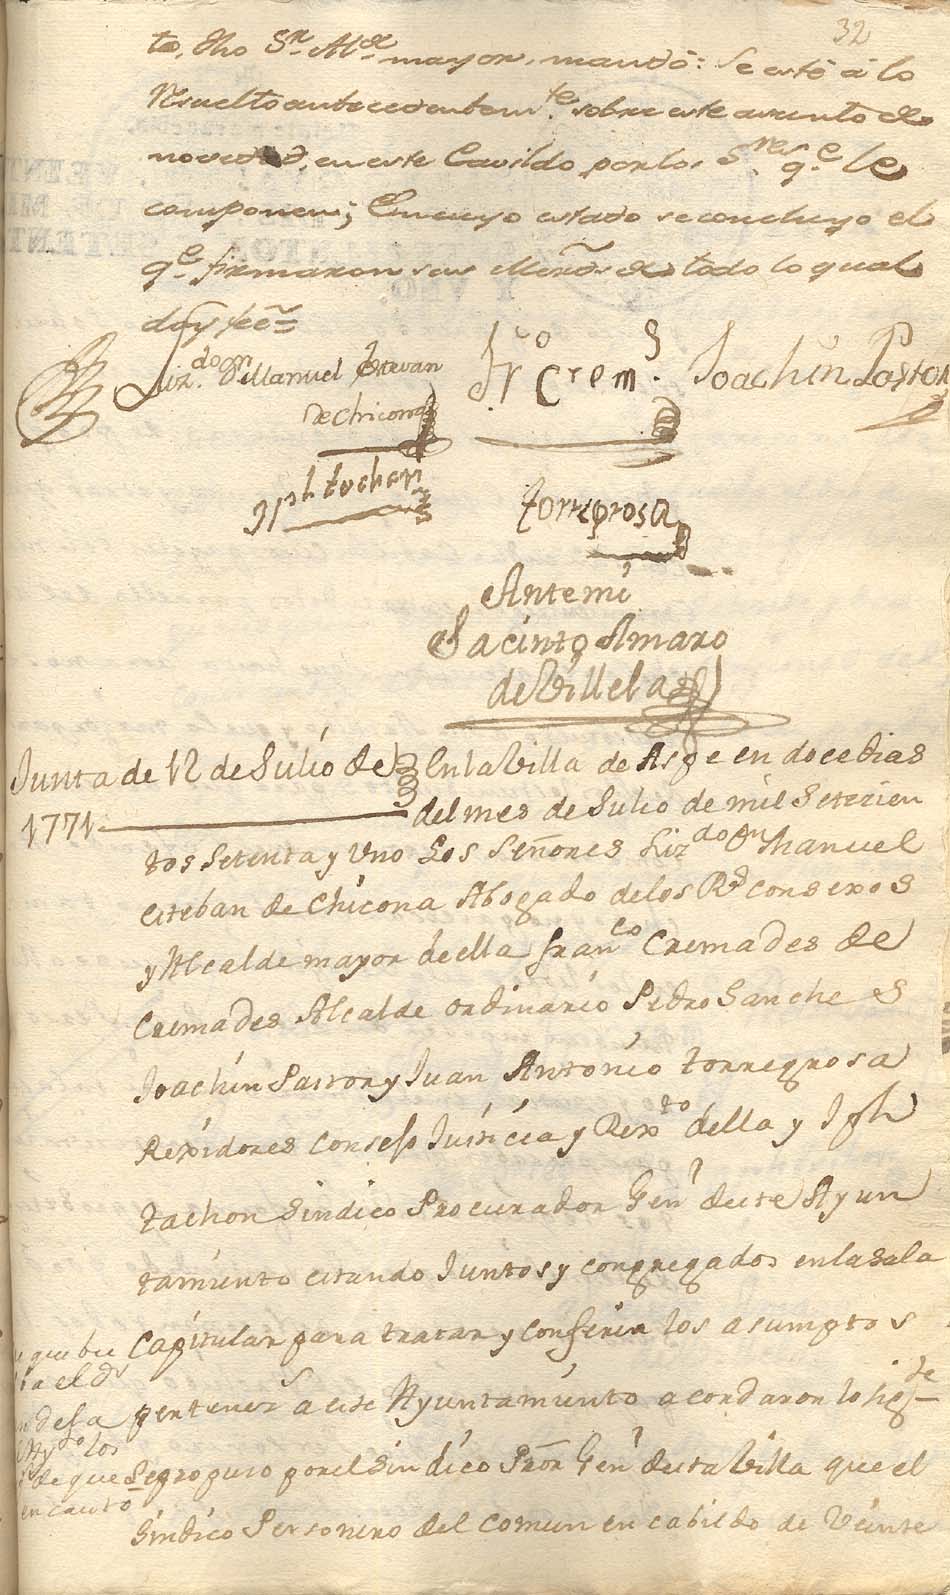 32
to, dho Sr. Alce. mayor, mandó: Se esté á lo
Resuelto antecedentemte. sobre este asunto de
novedad, en este Cavildo, por los Sres. qe. le
componen; En cuyo estado se concluyo el
qe. firmaron sus Merds. de todo lo qual
doy feé=
Lizdo. Dn. Manuel Estevan
de Chicona
Frco. Crem.s
Joachin Pastor
Jph. tochon
Torregrosa
Antemi
Jacinto Amaro
de Villela
Junta de 12 de Julio de
1771
En la Villa de Aspe en doce dias
del mes de Julio de mil Setecien
tos Setenta y Uno Los Señores Lizdo. Dn. Manuel
Esteban de Chicona Abogado de los Rs. consexos
y Alcalde mayor de ella Franco. Cremades de
Cremades Alcalde ordinario Pedro Sanches
Joachin Pastor y Juan Antonio torregrosa
Rexidores Consejo Justicia y Rexto. della y Jph
tachon Sindico Procurador Genl. deste Ayun
tamiento estando Juntos y congregados en la sala
Capitular para tratar y conferir los asumptos
pertenes. a este Ayuntamiento acordaron lo sigte.
que
el
los
de que
en cauto
Se propuso por el Sindico Pror. Genl. desta Villa que el
Sindico Personero del comun en cabildo de Veinte